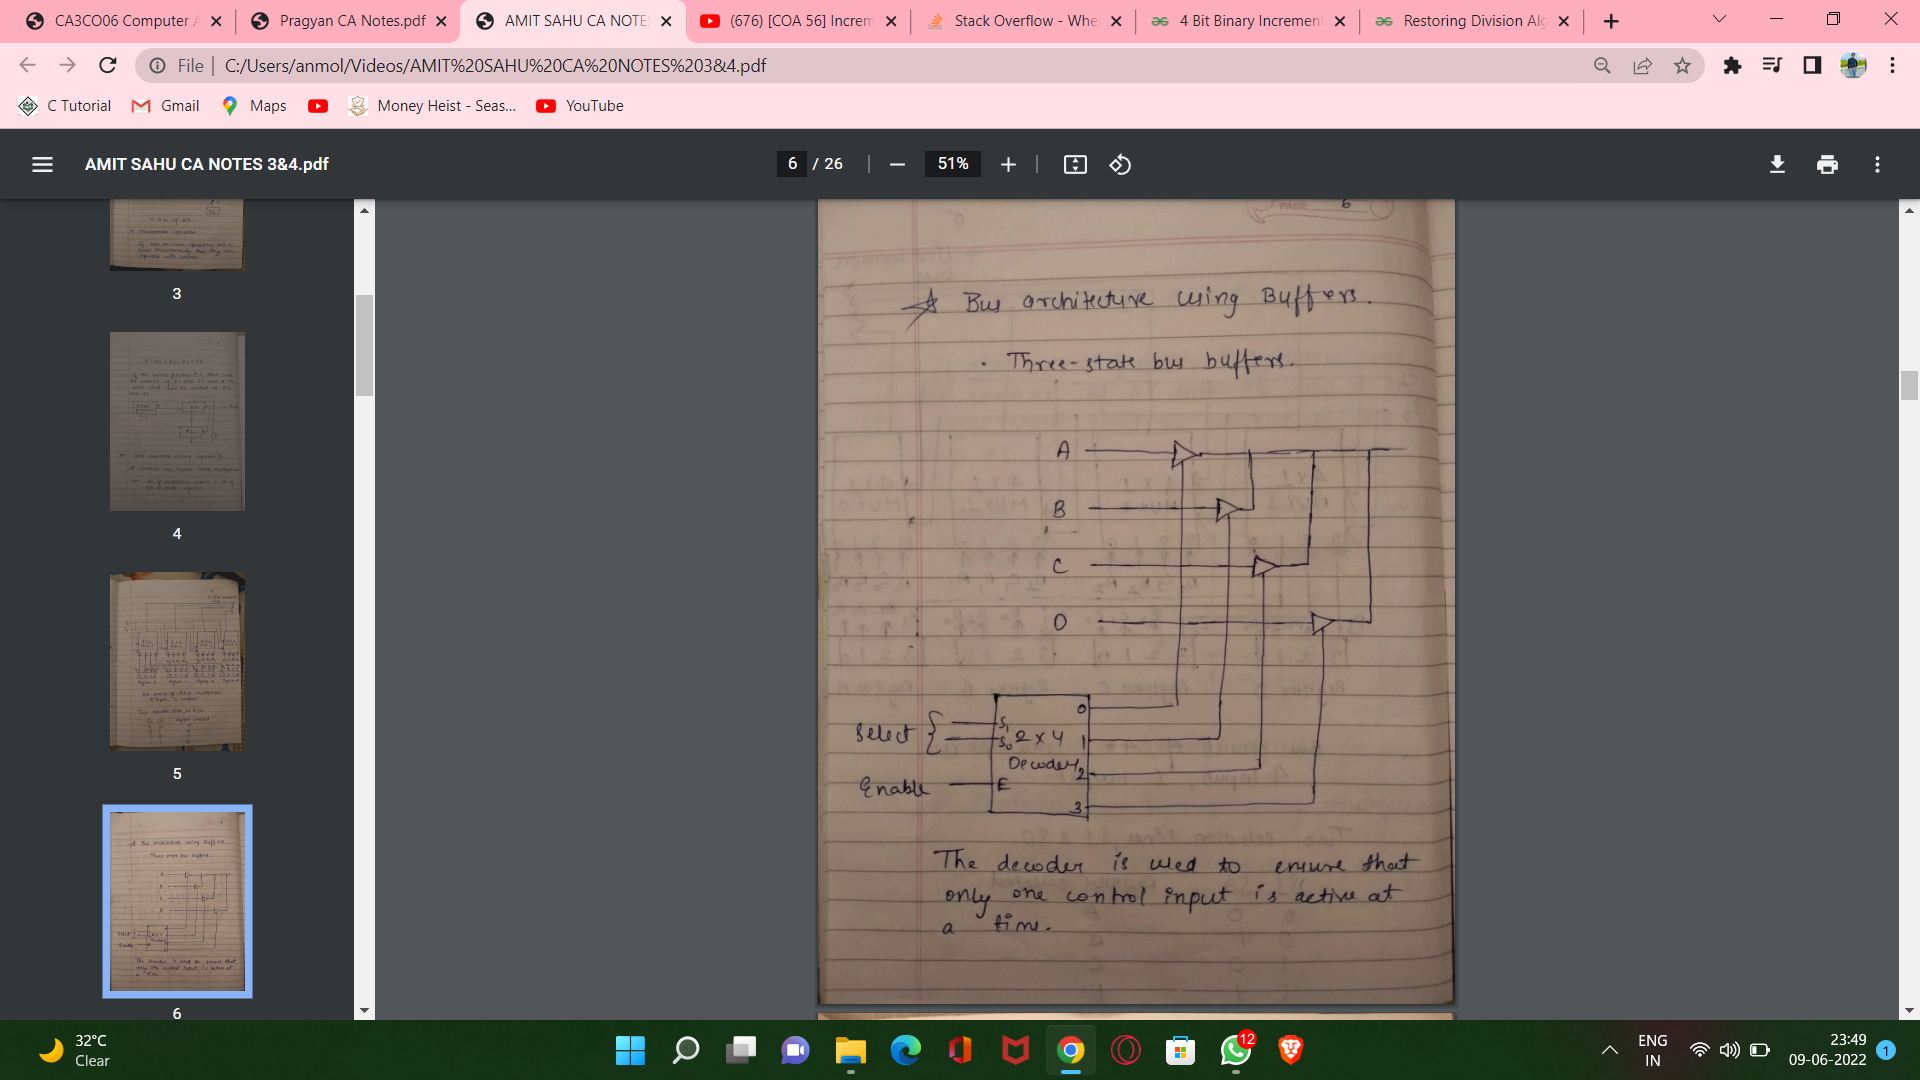 CA3CO06 Computer A
Pragyan CA Notes.pdf
AMIT SAHU CA NOTE
(676) [COA 56] Increm
Stack Overflow - Whe
4 Bit Binary Increment
Restoring Division Alg
File
C:/Users/anmol/Videos/AMIT%20SAHU%20CA%20NOTES%203&4.pdf
C Tutorial
Gmail
Maps
Money Heist - Seas...
YouTube
AMIT SAHU CA NOTES 3&4.pdf
6 / 26
51%
3
4
5
6
PAGE 6
Bus architecture using Buffers.
· Three-state bus buffers.
A
B
C
D
Select
S1
S0
2 x 4
Decoder
0
1
2
3
Enable
E
The decoder is used to ensure that
only one control input is active at
a time.
32°C
Clear
12
ENG
IN
23:49
09-06-2022
1